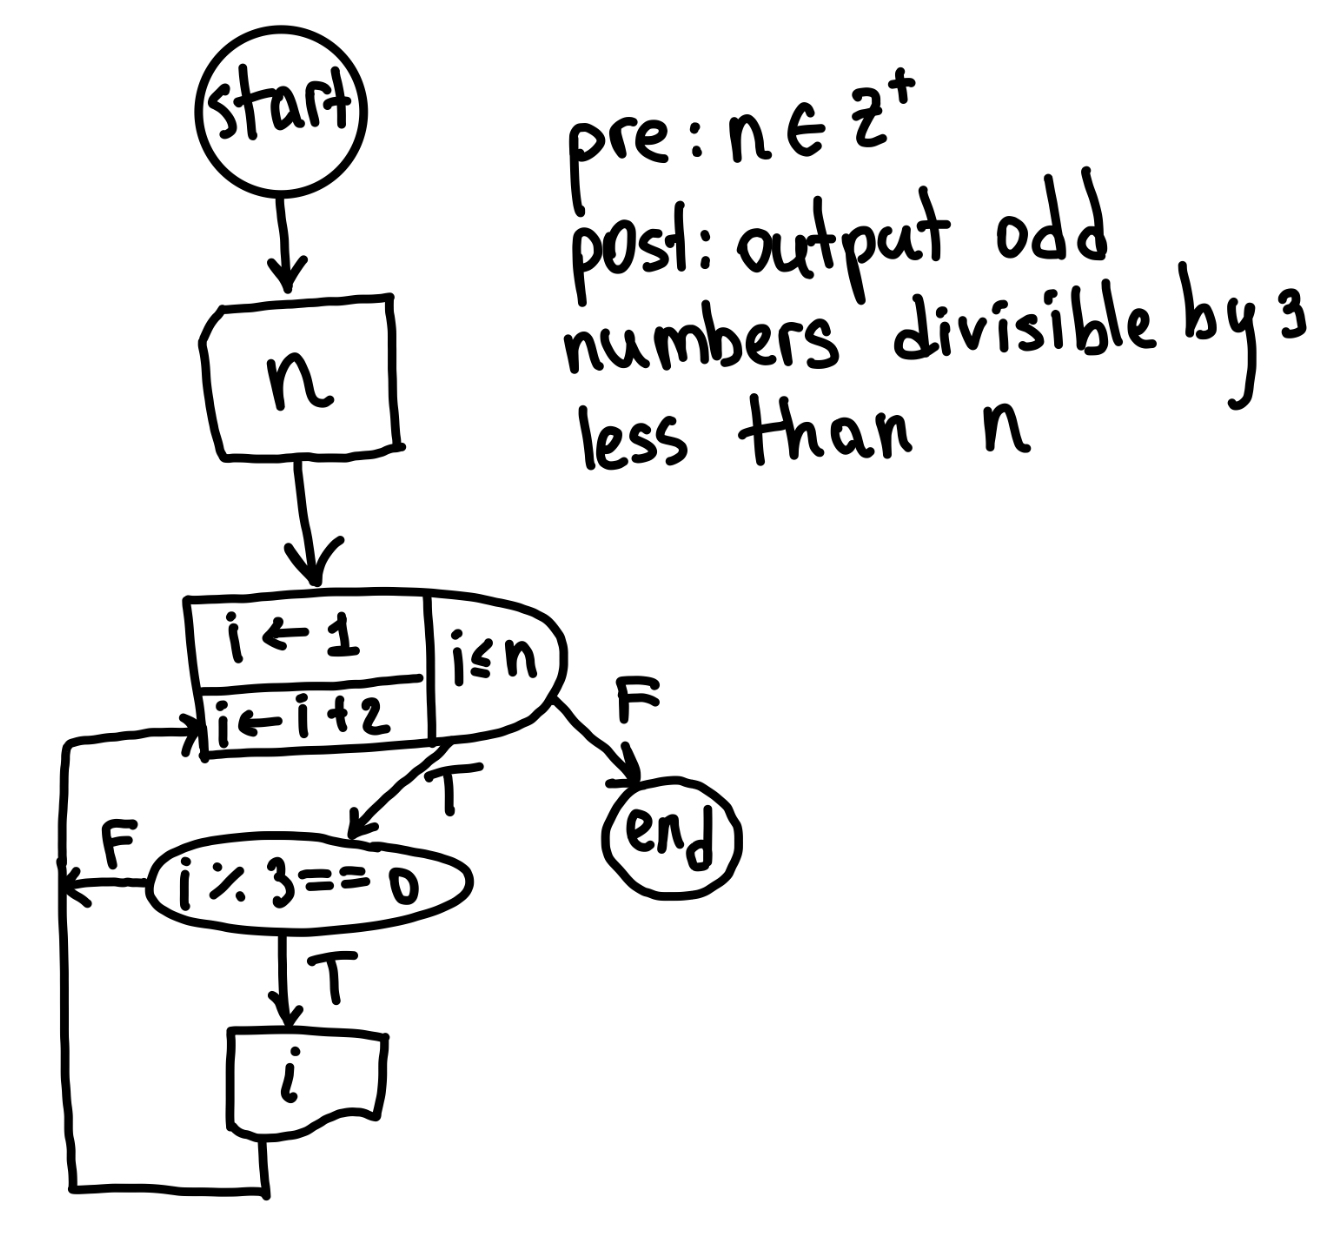 start
pre: n ∈ Z⁺
post: output odd
numbers divisible by 3
less than n
n
i ← 1
i ≤ n
i ← i + 2
F
T
end
F
i % 3 == 0
T
i